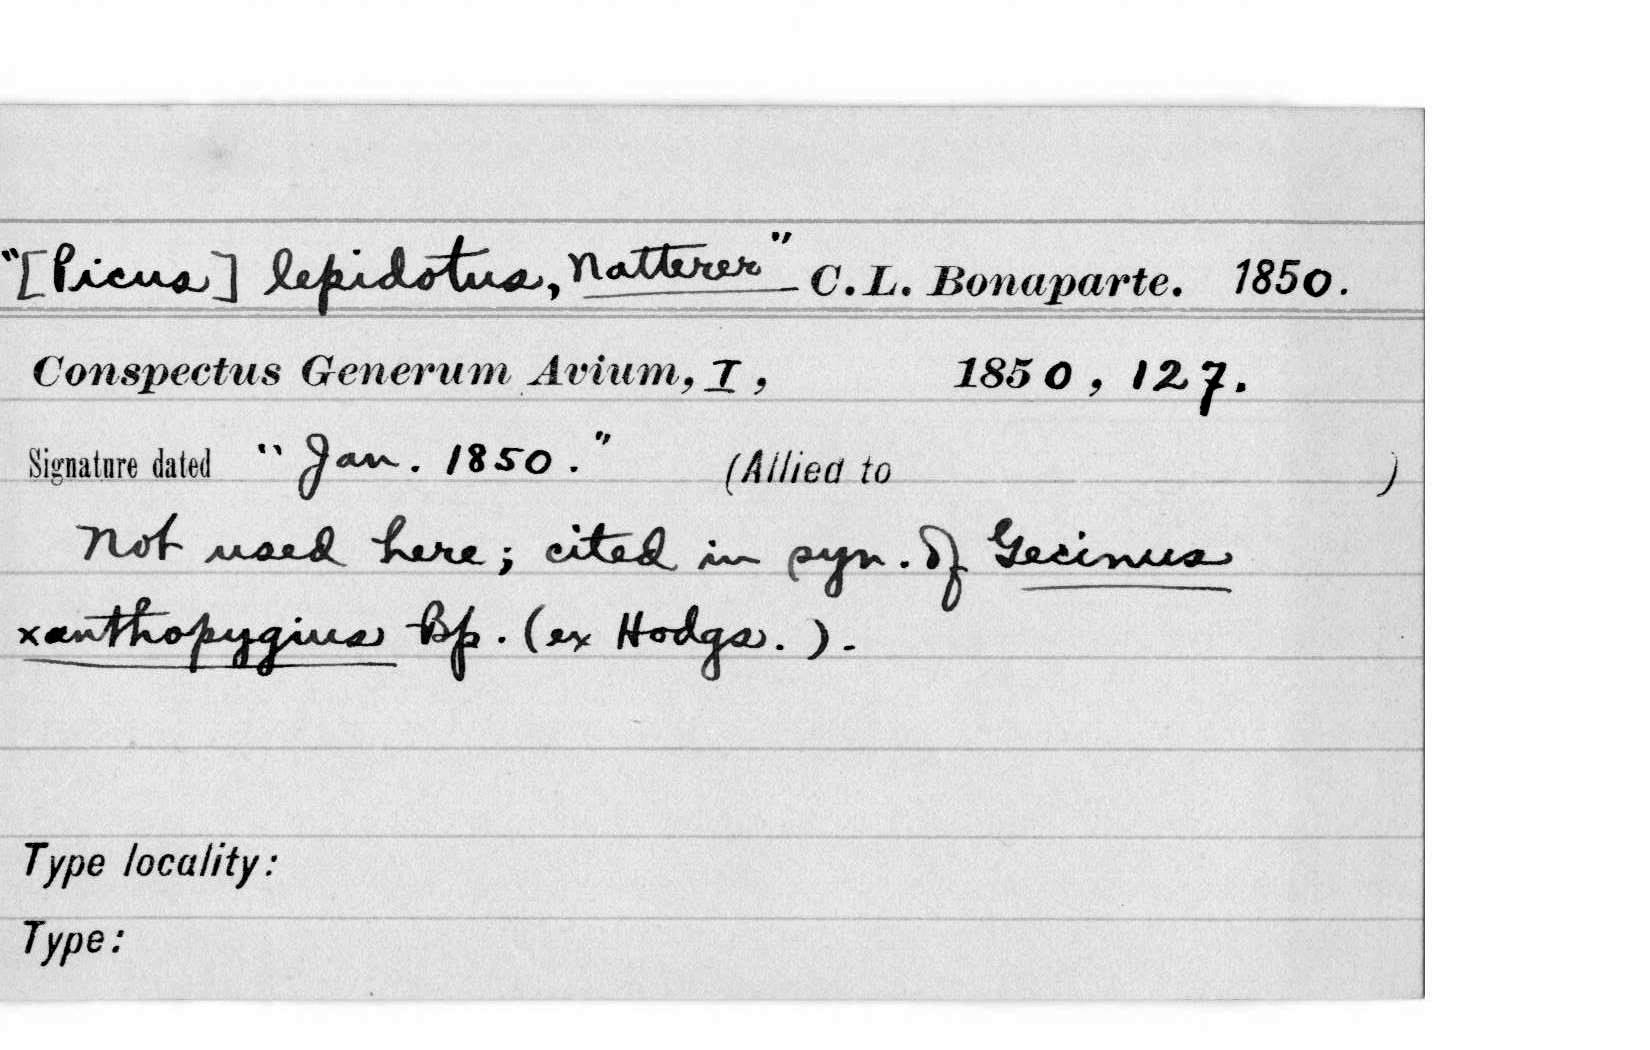 "[Picus] lepidotus, Natterer" C. L. Bonaparte. 1850.
Conspectus Generum Avium, I, 1850, 127.
Signature dated "Jan. 1850." (Allied to )
Not used here; cited in syn. of Gecinus
xanthopygius Bp. (ex Hodgs.).
Type locality:
Type: